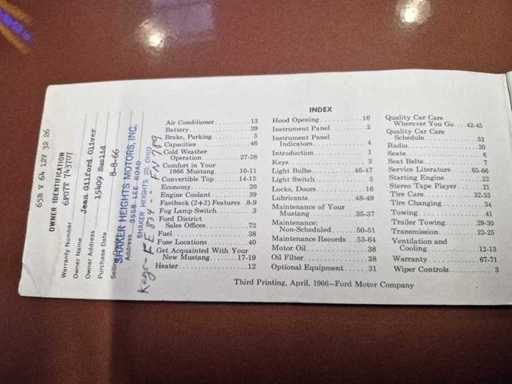 65B Y 64 12V 32 26
OWNER IDENTIFICATION
Warranty Number 6F07T 743707
Owner Name Jean Gilford Oliver
Owner Address 15809
Purchase Date 8-8-66
Selling
SHAKER HEIGHTS MOTORS, INC.
Address 3558 LEE ROAD
SHAKER HEIGHTS 20, OHIO
Keys - FE 894 - FN 789
INDEX
Air Conditioner 13
Battery 39
Brake, Parking 5
Capacities 46
Cold Weather
Operation 27-28
Comfort in Your
1966 Mustang 10-11
Convertible Top 14-15
Economy 26
Engine Coolant 39
Fastback (2+2) Features 8-9
Fog Lamp Switch 3
Ford District
Sales Offices 72
Fuel 38
Fuse Locations 40
Get Acquainted With Your
New Mustang 17-19
Heater 12
Hood Opening 16
Instrument Panel 2
Instrument Panel
Indicators 4
Introduction 1
Keys 3
Light Bulbs 46-47
Light Switch 3
Locks, Doors 16
Lubricants 48-49
Maintenance of Your
Mustang 35-37
Maintenance:
Non-Scheduled 50-51
Maintenance Records 53-64
Motor Oil 38
Oil Filter 38
Optional Equipment 31
Quality Car Care
Wherever You Go 42-45
Quality Car Care
Schedule 52
Radio 20
Seats 6
Seat Belts 7
Service Literature 65-66
Starting Engine 22
Stereo Tape Player 21
Tire Care 32-33
Tire Changing 34
Towing 41
Trailer Towing 29-30
Transmission 23-25
Ventilation and
Cooling 12-13
Warranty 67-71
Wiper Controls 3
Third Printing, April, 1966—Ford Motor Company